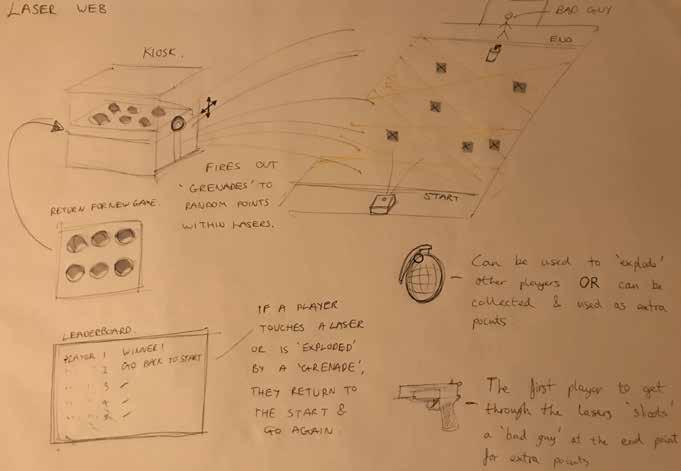 LASER WEB
KIOSK.
BAD GUY
END
START
FIRES OUT
'GRENADES' TO
RANDOM POINTS
WITHIN LASERS.
RETURN FOR NEW GAME.
LEADERBOARD.
PLAYER 1 WINNER!
2 GO BACK TO START
3
4
IF A PLAYER
TOUCHES A LASER
OR IS 'EXPLODED'
BY A 'GRENADE',
THEY RETURN TO
THE START &
GO AGAIN.
Can be used to 'explode'
other players OR can be
collected & used as extra
points
The first player to get
through the lasers 'shoots'
a 'bad guy' at the end point
for extra points